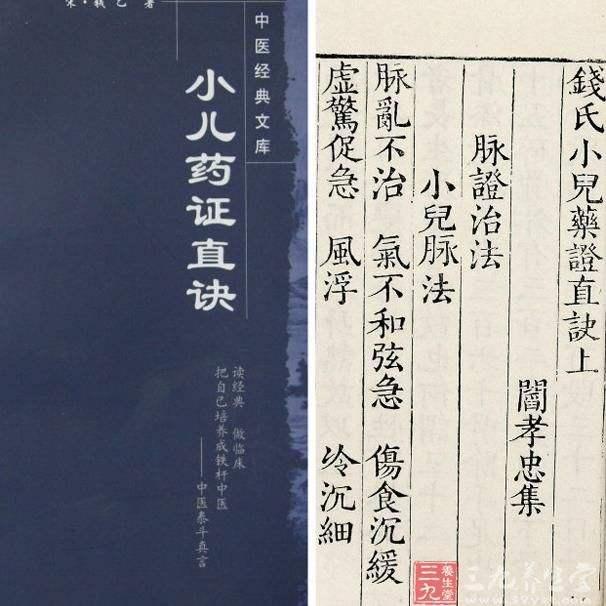 宋·钱乙 著
中医经典文库
小儿药证直诀
读经典 做临床
把自己培养成铁杆中医
——中医泰斗真言
錢氏小兒藥證直訣上
閻孝忠集
脉證治法
小兒脉法
脉亂不治 氣不和弦急 傷食沉緩
虛驚促急 風浮 冷沉細
養生堂
三九
三九养生堂